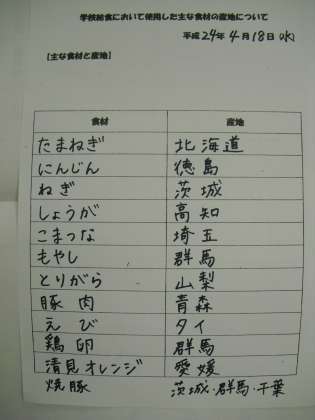 学校給食において使用した主な食材の産地について
平成24年4月18日(水)
【主な食材と産地】
食材 産地
たまねぎ 北海道
にんじん 徳島
ねぎ 茨城
しょうが 高知
こまつな 埼玉
もやし 群馬
とりがら 山梨
豚肉 青森
えび タイ
鶏卵 群馬
清見オレンジ 愛媛
焼豚 茨城・群馬・千葉